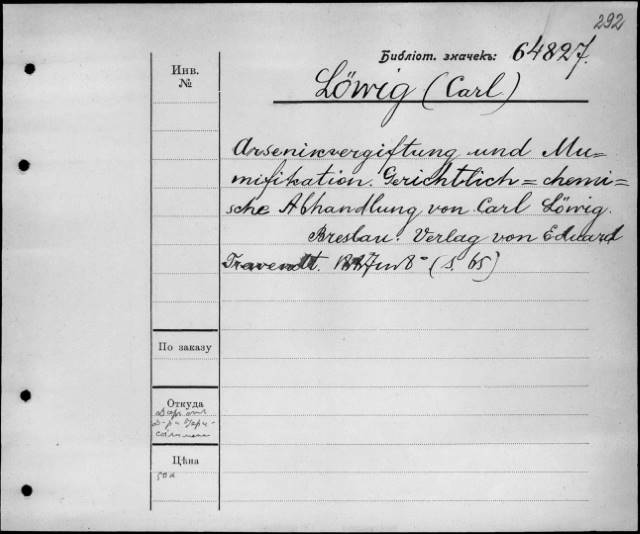 292
Библіот. значекъ: 64827.
Инв.
№
Löwig (Carl)
Arsenikvergiftung und Mu=
mifikation. Gerichtlich=chemi=
sche Abhandlung von Carl Löwig.
Breslau. Verlag von Eduard
in 8° (S. 65)
По заказу
Откуда
Цѣна